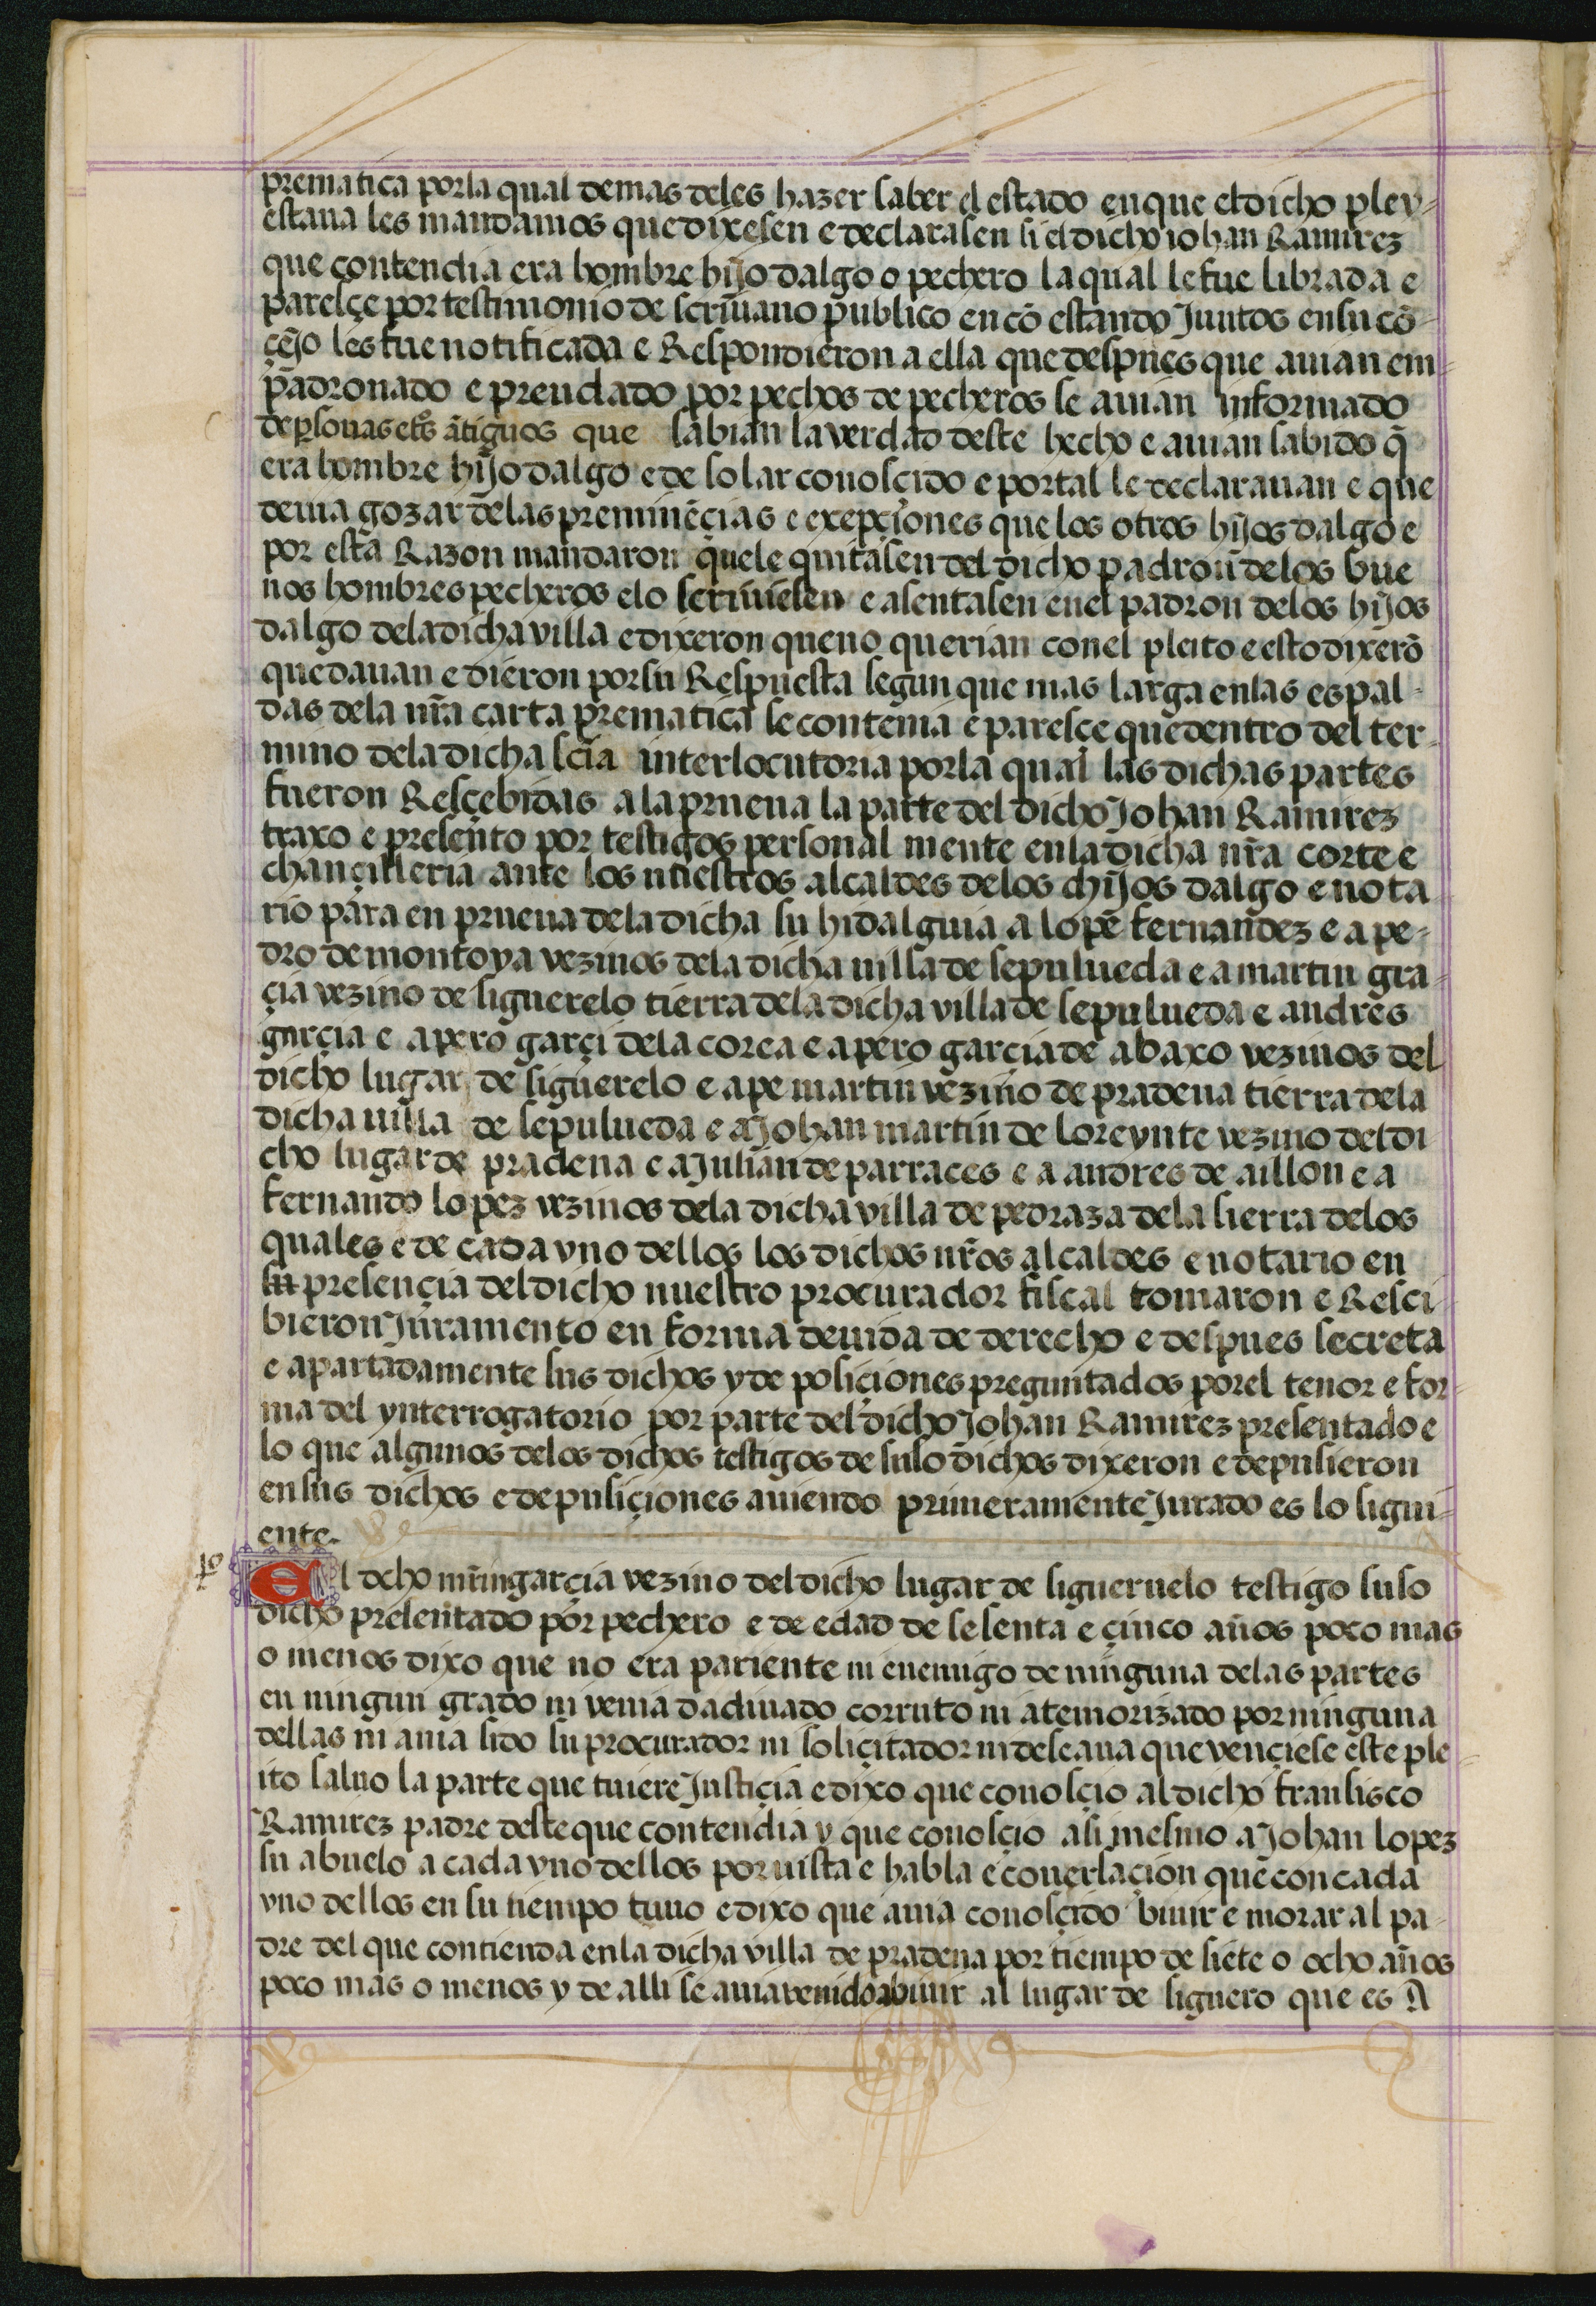 prematica por la qual demas deles hazer saber el estado en que el dicho pley-
estaua les mandamos que dixesen e declarasen si el dicho iohan Ramirez
que contendia era hombre hijo dalgo o pechero la qual le fue librada e
paresçe por testimonio de scriuano publico en cõ estando Juntos en su cõ-
çejo les fue notificada e Respondieron a ella que despues que auian em-
padronado e prendado por pechos de pecheros se auian informado
de psonas ãtiguos que sabian la verdad deste hecho e auian sabido q̃
era hombre hijo dalgo e de solar conosçido e por tal le declarauan e que
deuia gozar delas preminẽçias e exepçiones que los otros hijos dalgo e
por esta Razon mandaron quele quitasen del dicho padron delos bue
nos hombres pecheros e lo scriuiesen e asentasen en el padron delos hijos
dalgo dela dicha villa e dixeron que no querian con el pleito e esto dixerõ
que dauan e dieron por su Respuesta segun que mas larga en las espal-
das dela nr̃a carta prematica se contenia e paresçe que dentro del ter-
mino dela dicha scĩa interlocutoria por la qual las dichas partes
fueron Resçebidas a la prueua la parte del dicho Johan Ramirez
traxo e presento por testigos personal mente en la dicha nr̃a corte e
chançilleria ante los nuestros alcaldes delos hijos dalgo e nota
rio para en prueua dela dicha su hidalguia a lope fernandez e a pe-
dro de montoya vezinos dela dicha uilla de sepulueda e a martin gra-
çia vezino de siguerelo tierra dela dicha villa de sepulueda e andres
garçia e a pero garçi dela corea e a pero garçia de abaxo vezinos del
dicho lugar de siguerelo e a pe martin vezino de pradena tierra dela
dicha uilla de sepulueda e a Johan martin de loreynte vezino del di
cho lugar de pradena e a Julian de parraces e a andres de aillon e a
fernando lopez vezinos dela dicha villa de pedraza dela sierra delos
quales e de cada vno dellos los dichos nr̃os alcaldes e notario en
presençia del dicho nuestro procurador fiscal tomaron e Resci-
bieron Juramento en forma deuida de derecho e despues secreta
e apartadamente sus dichos y de posiçiones preguntados por el tenor e for-
ma del ynterrogatorio por parte del dicho Johan Ramirez presentado e
lo que algunos delos dichos testigos de suso dichos dixeron e depusieron
en sus dichos e depusiçiones auiendo primeramente Jurado es lo sigui-
ente.
El dcho mr̃in garçia vezino del dicho lugar de sigueruelo testigo suso
dicho presentado por pechero e de edad de sesenta e çinco años poco mas
o menos dixo que no era pariente ni enemigo de ninguna delas partes
en ningun grado ni venia dadiuado corruto ni atemorizado por ninguna
dellas ni auia sido su procurador ni soliçitador ni deseaua que vençiese este ple-
ito saluo la parte que tuiere Justiçia e dixo que conosçio al dicho fransisco
Ramirez padre deste que contendia y que conosçio asi mesmo a Johan lopez
su abuelo a cada vno dellos por uista e habla e conersaçion que con cada
vno dellos en su tiempo tuuo e dixo que auia conosçido biuir e morar al pa-
dre del que contienda en la dicha villa de pradena por tiempo de siete o ocho años
poco mas o menos y de alli se auia venido a biuir al lugar de siguero que es A